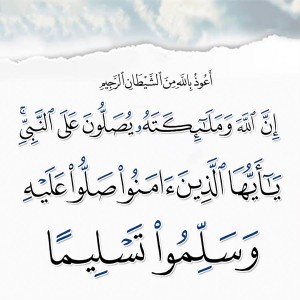 أَعُوذُ بِاللَّهِ مِنَ ٱلشَّيْطَانِ ٱلرَّجِيمِ
إِنَّ ٱللَّهَ وَمَلَـٰٓئِكَتَهُۥ يُصَلُّونَ عَلَى ٱلنَّبِىِّ ۚ
يَـٰٓأَيُّهَا ٱلَّذِينَ ءَامَنُوا۟ صَلُّوا۟ عَلَيْهِ
وَسَلِّمُوا۟ تَسْلِيمًا